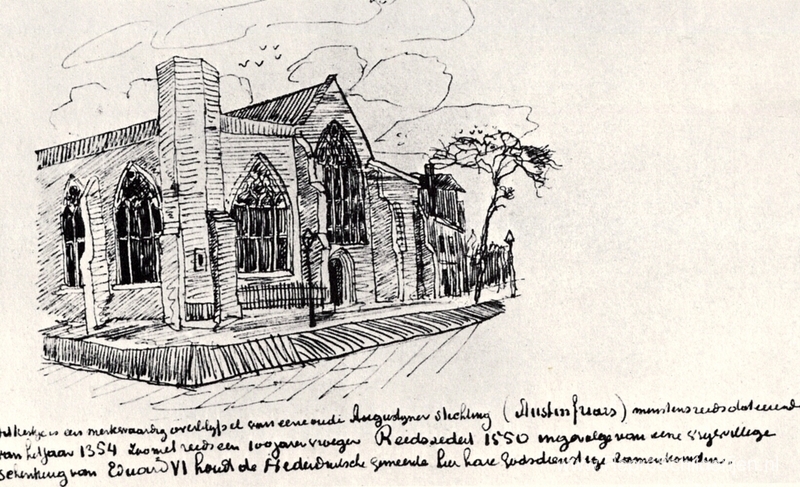 Dit kerkje is een merkwaardig overblijfsel van eene oude Augustyner stichting (Austin friars) minstens reeds dateerend
van het jaar 1354 zoo niet reeds een 100 jaar vroeger Reeds sedert 1550 ingevolge van eene vrijwillige
schenking van Eduard VI houdt de Nederduitsche gemeente hier hare Godsdienstige zamenkomsten.